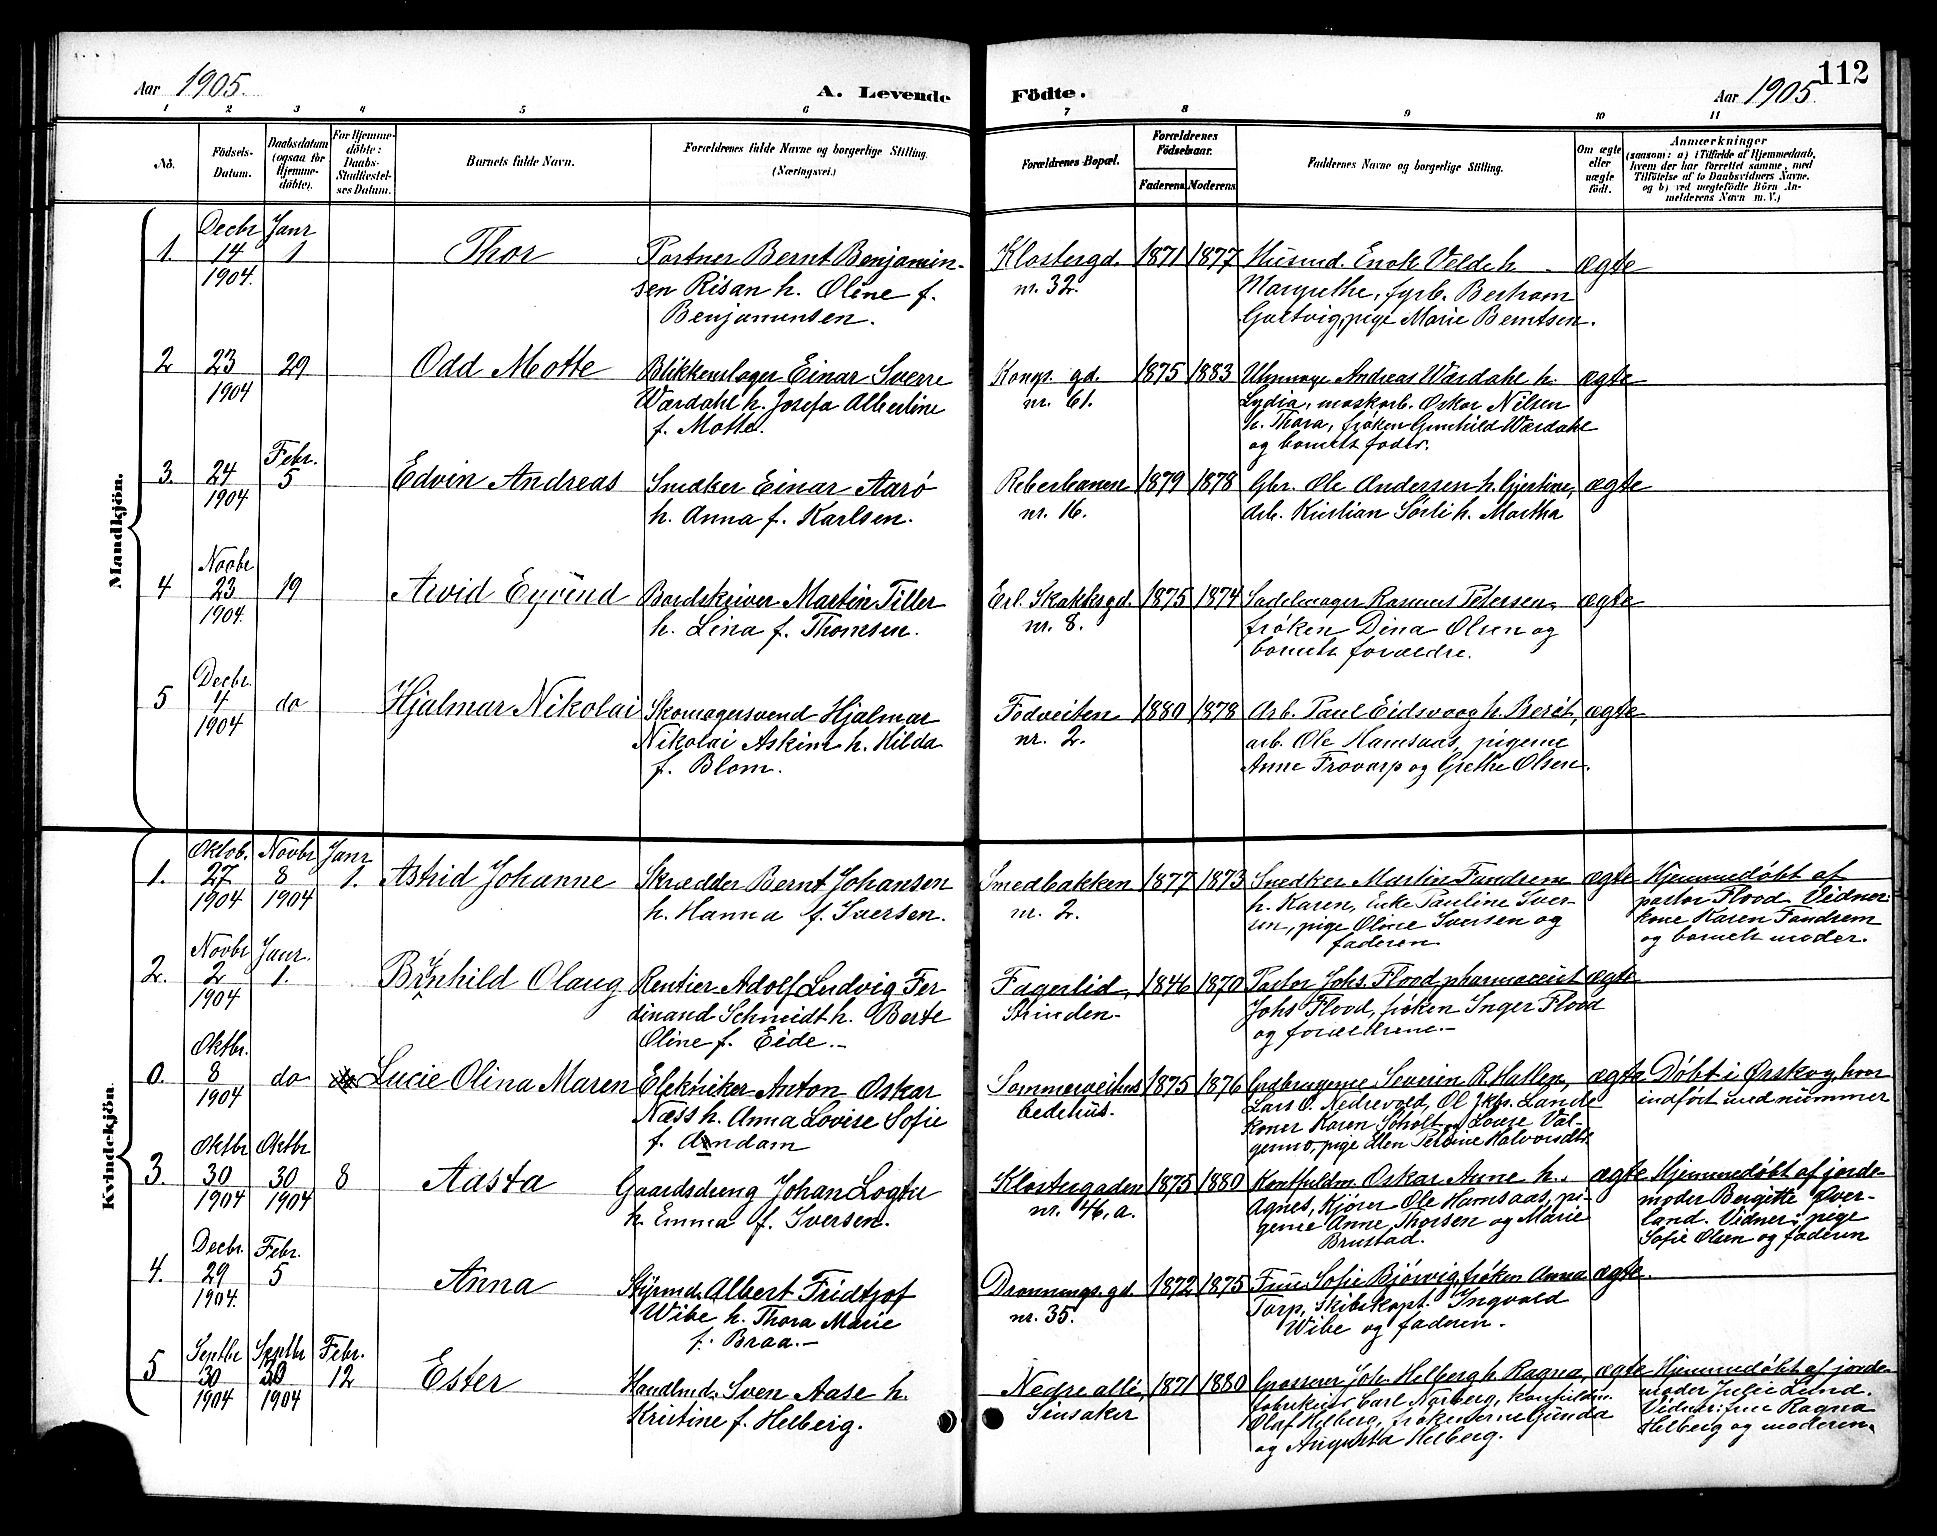 Aar 1905.
A. Levende Födte.
Aar 1905.
112
1 2 3 4 5 6 7 8 9 10 11
No.
Födsels-
Datum.
Daabsdatum
(ogsaa for
Hjemme-
döbte).
For Hjemme-
döbte:
Daabs-
Stadfæstel-
ses Datum.
Barnets fulde Navn.
Forældrenes fulde Navne og borgerlige Stilling.
(Næringsvei.)
Forældrenes Bopæl.
Forældrenes
Födselsaar.
Faderens
Moderens
Faddernes Navne og borgerlige Stilling.
Om ægte
eller
uægte
født.
Anmærkninger
(saasom: a) i Tilfælde af Hjemmedaab,
hvem der har forrettet samme, med
Tilføielse af to Daabsvidners Navne,
og b) ved uegtefödte Börn An-
melderens Navn m. V.)
Mandkjön.
1. Decbr 14 1904. Janr 1 Thor
Portner Bernt Benjamin-
sen Risan h. Oline f.
Benjaminsen.
Klostergd.
nr. 32.
1871 1877
Husmd. Enok Velde h
Margrethe, fyrb. Bertram
Gultvig, pige Marie Berntsen.
ægte
2 23 1904 29 Odd Motte
Blikkenslager Einar Sverre
Wærdahl h. Josefa Albertine
f. Motte.
Kongs. gd.
nr. 61.
1875 1883
Uhrmager Andreas Wærdahl h.
Lydia, maskarb. Oskar Nilsen
h. Thora, frøken Gunhild Wærdahl
og barnets fader.
ægte
3. 24 1904 Febr. 5 Edvin Andreas
Snedker Einar Aarö
h. Anna f. Karlsen.
Reberbanen
nr. 16.
1879 1878
Gbr. Ole Andersen h. Gjertine,
arb. Kristian Sørli h. Martha
ægte
4 Novbr 23 1904. 19 Arvid Eyvind
Bordskriver Martin Tiller
h. Lina f. Thomsen.
Erl. Skakksgd.
nr. 8.
1875 1874
Sadelmager Rasmus Petersen,
frøken Dina Olsen og
barnets forældre.
ægte
5 Decbr. 4 1904 do Hjalmar Nikolai
Skomagersvend Hjalmar
Nikolai Askim h. Hilda
f. Blom.
Fodveiten
nr. 2.
1880 1878
Arb. Paul Eidsvaag h. Berit,
arb. Ole Hamsaas, pigerne
Anne Trovarp og Grethe Olsen.
ægte
Kvindekjön.
1. Oktob. 27 1904 Novbr 8 1904 Janr 1. Astrid Johanne
Skrædder Bernt Johansen
h. Hanna f. Iversen.
Smedbakken
nr. 2.
1877 1873
Snedker Martin Fandrem
h. Karen, enke Pauline Iver-
sen, pige Oline Iversen og
faderen
ægte
Hjemmedøbt af
pastor Flood. Vidner:
kone Karen Fandrem
og barnets moder.
2. Novbr 2 1904 Janr. 1. Brynhild Olaug
Rentier Adolf Ludvig Fer
dinand Schmidt h. Berte
Oline f. Eide.
Fagerlid,
Strinden
1846 1870
Pastor Johs. Flood, pharmaceut
Johs Flood, frøken Inger Flood
og forældrene.
ægte
0. Oktbr. 8 1904 do Lucie Olina Maren
Elektriker Anton Oskar
Næss h. Anna Lovise Sofie
f. Amdam
Sommerveihus
bedehus.
1875 1876
Gudbrugerne Severin R. Hatlen,
Lars O. Nedrevold, Ol. Jkbs. Lande
Koner Karen Sjoholt og Lovise Val-
germo, pige Elen Petrine Halvorsdtr.
ægte
Døbt i Ørskog, hvor
indført med nummer
3 Oktbr 30 1904 Oktbr 30 1904 8 Aasta
Gaardsdreng Johan Logtu
h. Emma f. Iversen.
Klostergaden
nr. 46, a.
1875 1880
Kontfuldm Oskar Aune h.
Agnes, Kjører Ole Hamsaas, pi-
gerne Anne Thorsen og Marie
Brustad.
ægte
Hjemmedøbt af jorde-
moder Bergitte Over-
land. Vidner: pige
Sofie Olsen og faderen
4. Decbr. 29 1904. Febr. 5 Anna
Styrmd. Albert Fridtjof
Wibe h. Thora Marie
f. Braa.
Dronnings. gd.
nr. 35.
1872 1875
Frue Sofie Bjørvig, frøken Anna
Torp, Skibskapt. Ingvald
Wibe og faderen.
ægte.
5 Septbr 30 1904 Septbr 30 1904 Febr. 12 Ester
Handlmd. Sven Aase h.
Kristine f. Helberg.
Nedre allé,
Sinsaker
1871 1880
Grosserer Joh. Helberg h. Ragna,
fabrikeier Carl Norberg, kontfuldm.
Olaf Helberg, frøknerne Gunda
og Augusta Helberg.
ægte
Hjemmedøbt af jorde
moder Julie Lund.
Vidner: frue Ragna
Helberg og moderen.